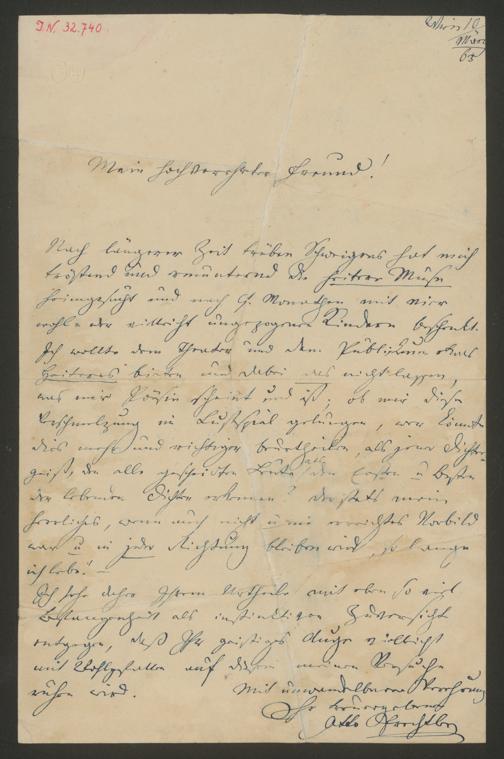 I.N. 32.740
Wien 10
März
65
Mein hochverehrter Freund!
Nach längerer Zeit trüben Schweigens hat mich
tröstend und ermunternd die heitere Muse
heimgesucht und nach 9. Monathen mit vier
wohl= oder vielleicht ungezogenen Kindern beschenkt.
Ich wollte dem Theater und dem Publikum etwas
Heiteres bieten und dabei das nicht lassen,
was mir Poesie scheint und ist; ob mir diese
Verschmelzung im Lustspiel gelungen, wer könnte
dies mehr und richtiger beurtheilen, als jener Dichter=
geist, den alle gescheidten Leute für den Ersten u Besten
der lebenden Dichter erkennen? der stets mein
herrliches, wenn auch nicht u nie erreichtes Vorbild
war u in jeder Richtung bleiben wird, so lange
ich lebe! —
Ich sehe daher Ihrem Urtheile mit eben so viel
Befangenheit als instinktiger Zuversicht
entgegen, daß Ihr geistiges Auge vielleicht
mit Wohlgefallen auf diesem meinen Versuche
ruhen wird.
Mit unwandelbarer Verehrung
Ihr treuergebener
Otto Prechtler